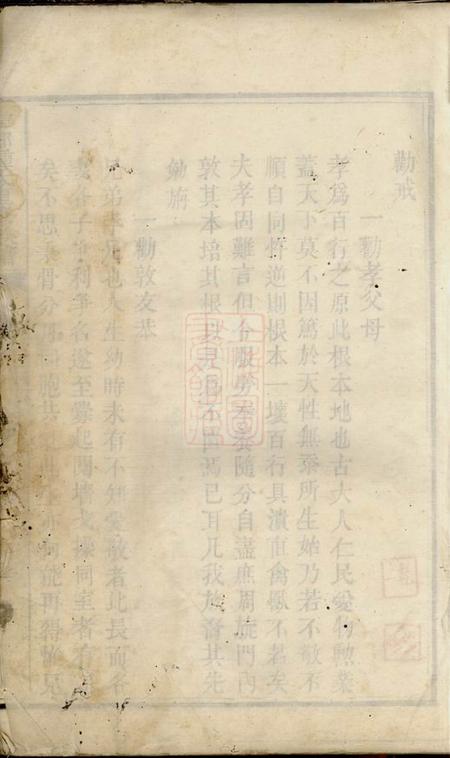 勸戒
一勸孝父母
孝爲百行之原此根本地也古大人仁民愛物勲業
蓋天下莫不因篤於天性無忝所生始乃若不敬不
順自同悖逆則根本一壞百行具潰直禽獸不若矣
夫孝固難言但今服勞奉養隨分自盡庶周旋門內
敦其本培其根以是爲不匱焉已耳凡我族眷其先
勉旃
一勸敦友恭
兄弟手足也人生幼時未有不知愛敬者比長而各
妻各子爭利爭名遂至釁起鬩墻戈操同室者有
矣不思骨分胞共能再得